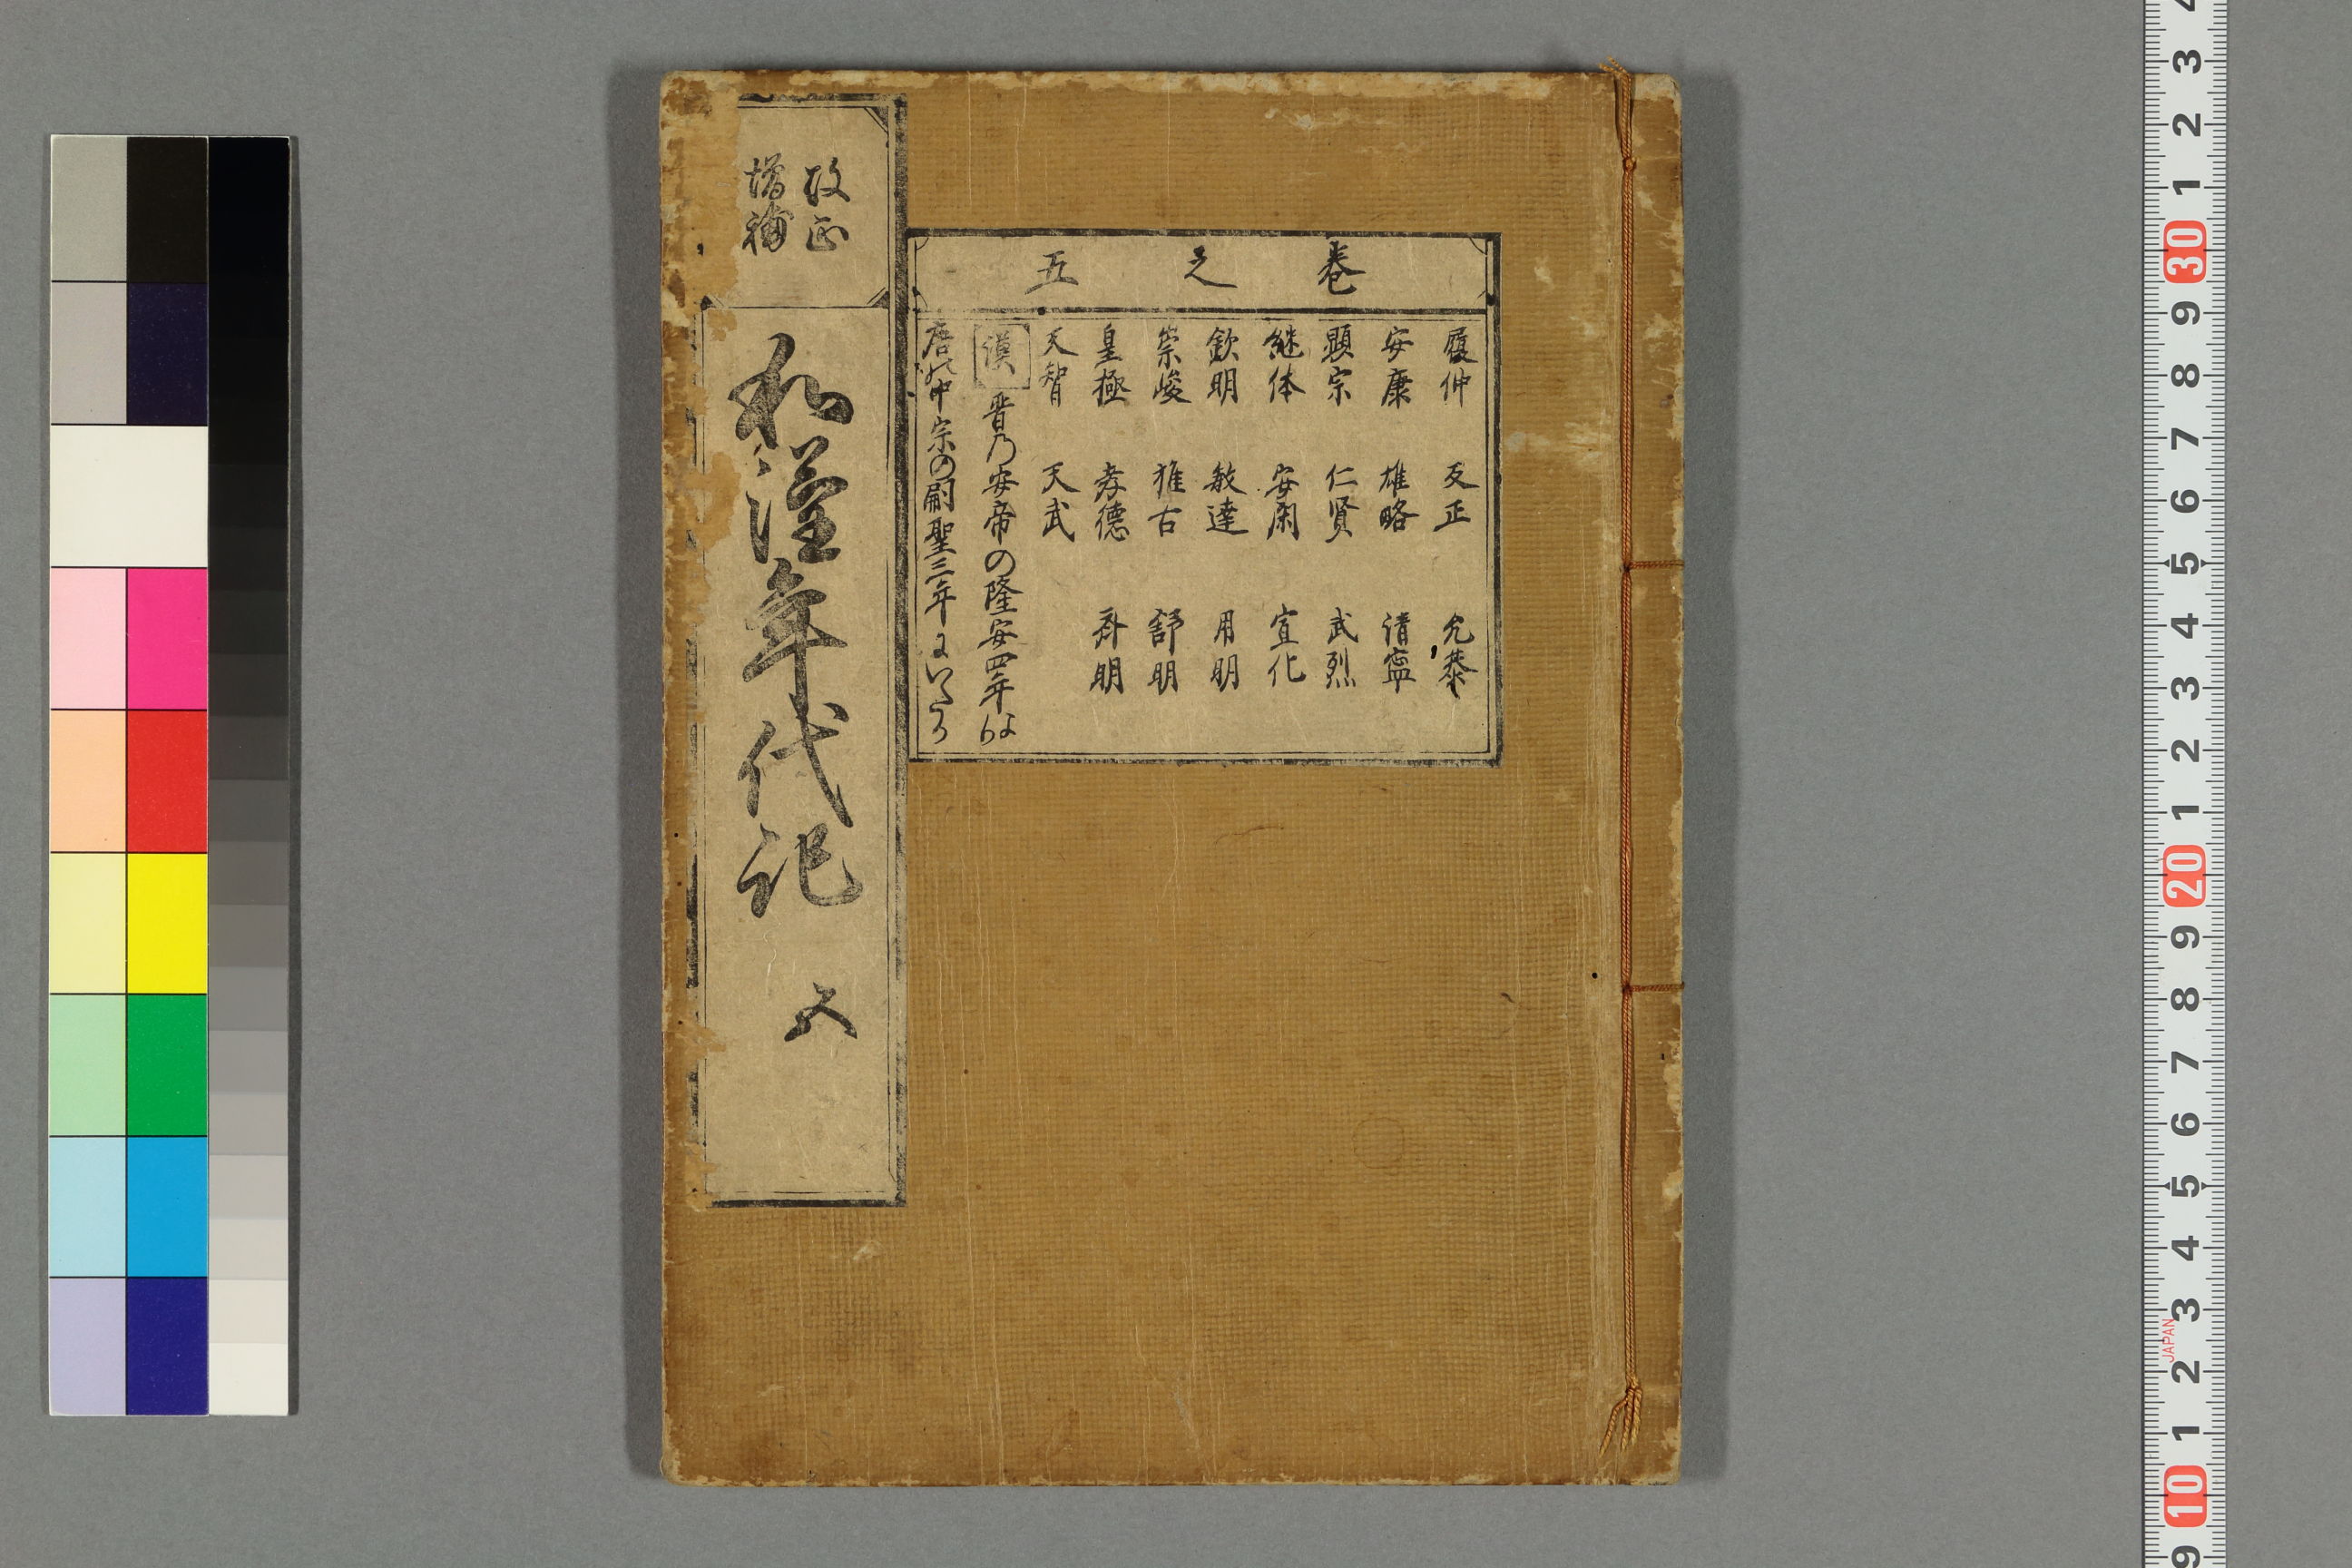 改正
増補
和漢年代記 五
巻之五
履仲 反正 允恭
安康 雄略 清寧
顕宗 仁賢 武烈
継体 安閑 宣化
欽明 敏達 用明
崇峻 推古 舒明
皇極 孝徳 斉明
天智 天武
漢 晋乃安帝の隆安四年より
唐の中宗の嗣聖三年にいたる
4
3
2
1
30
9
8
7
6
5
4
3
2
1
20
9
8
7
6
5
4
3
JAPAN
2
1
10
9